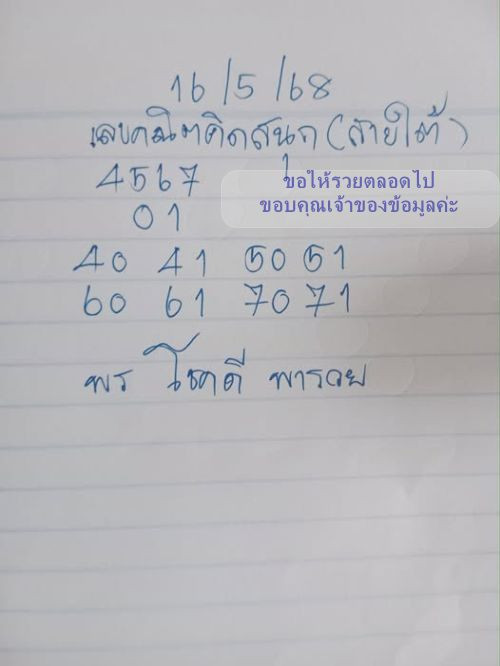 16/5/68
เลขคณิตคิดสนุก (สายใต้)
4567
01
ขอให้รวยตลอดไป
ขอบคุณเจ้าของข้อมูลค่ะ
40 41 50 51
60 61 70 71
พร โชคดี พารวย